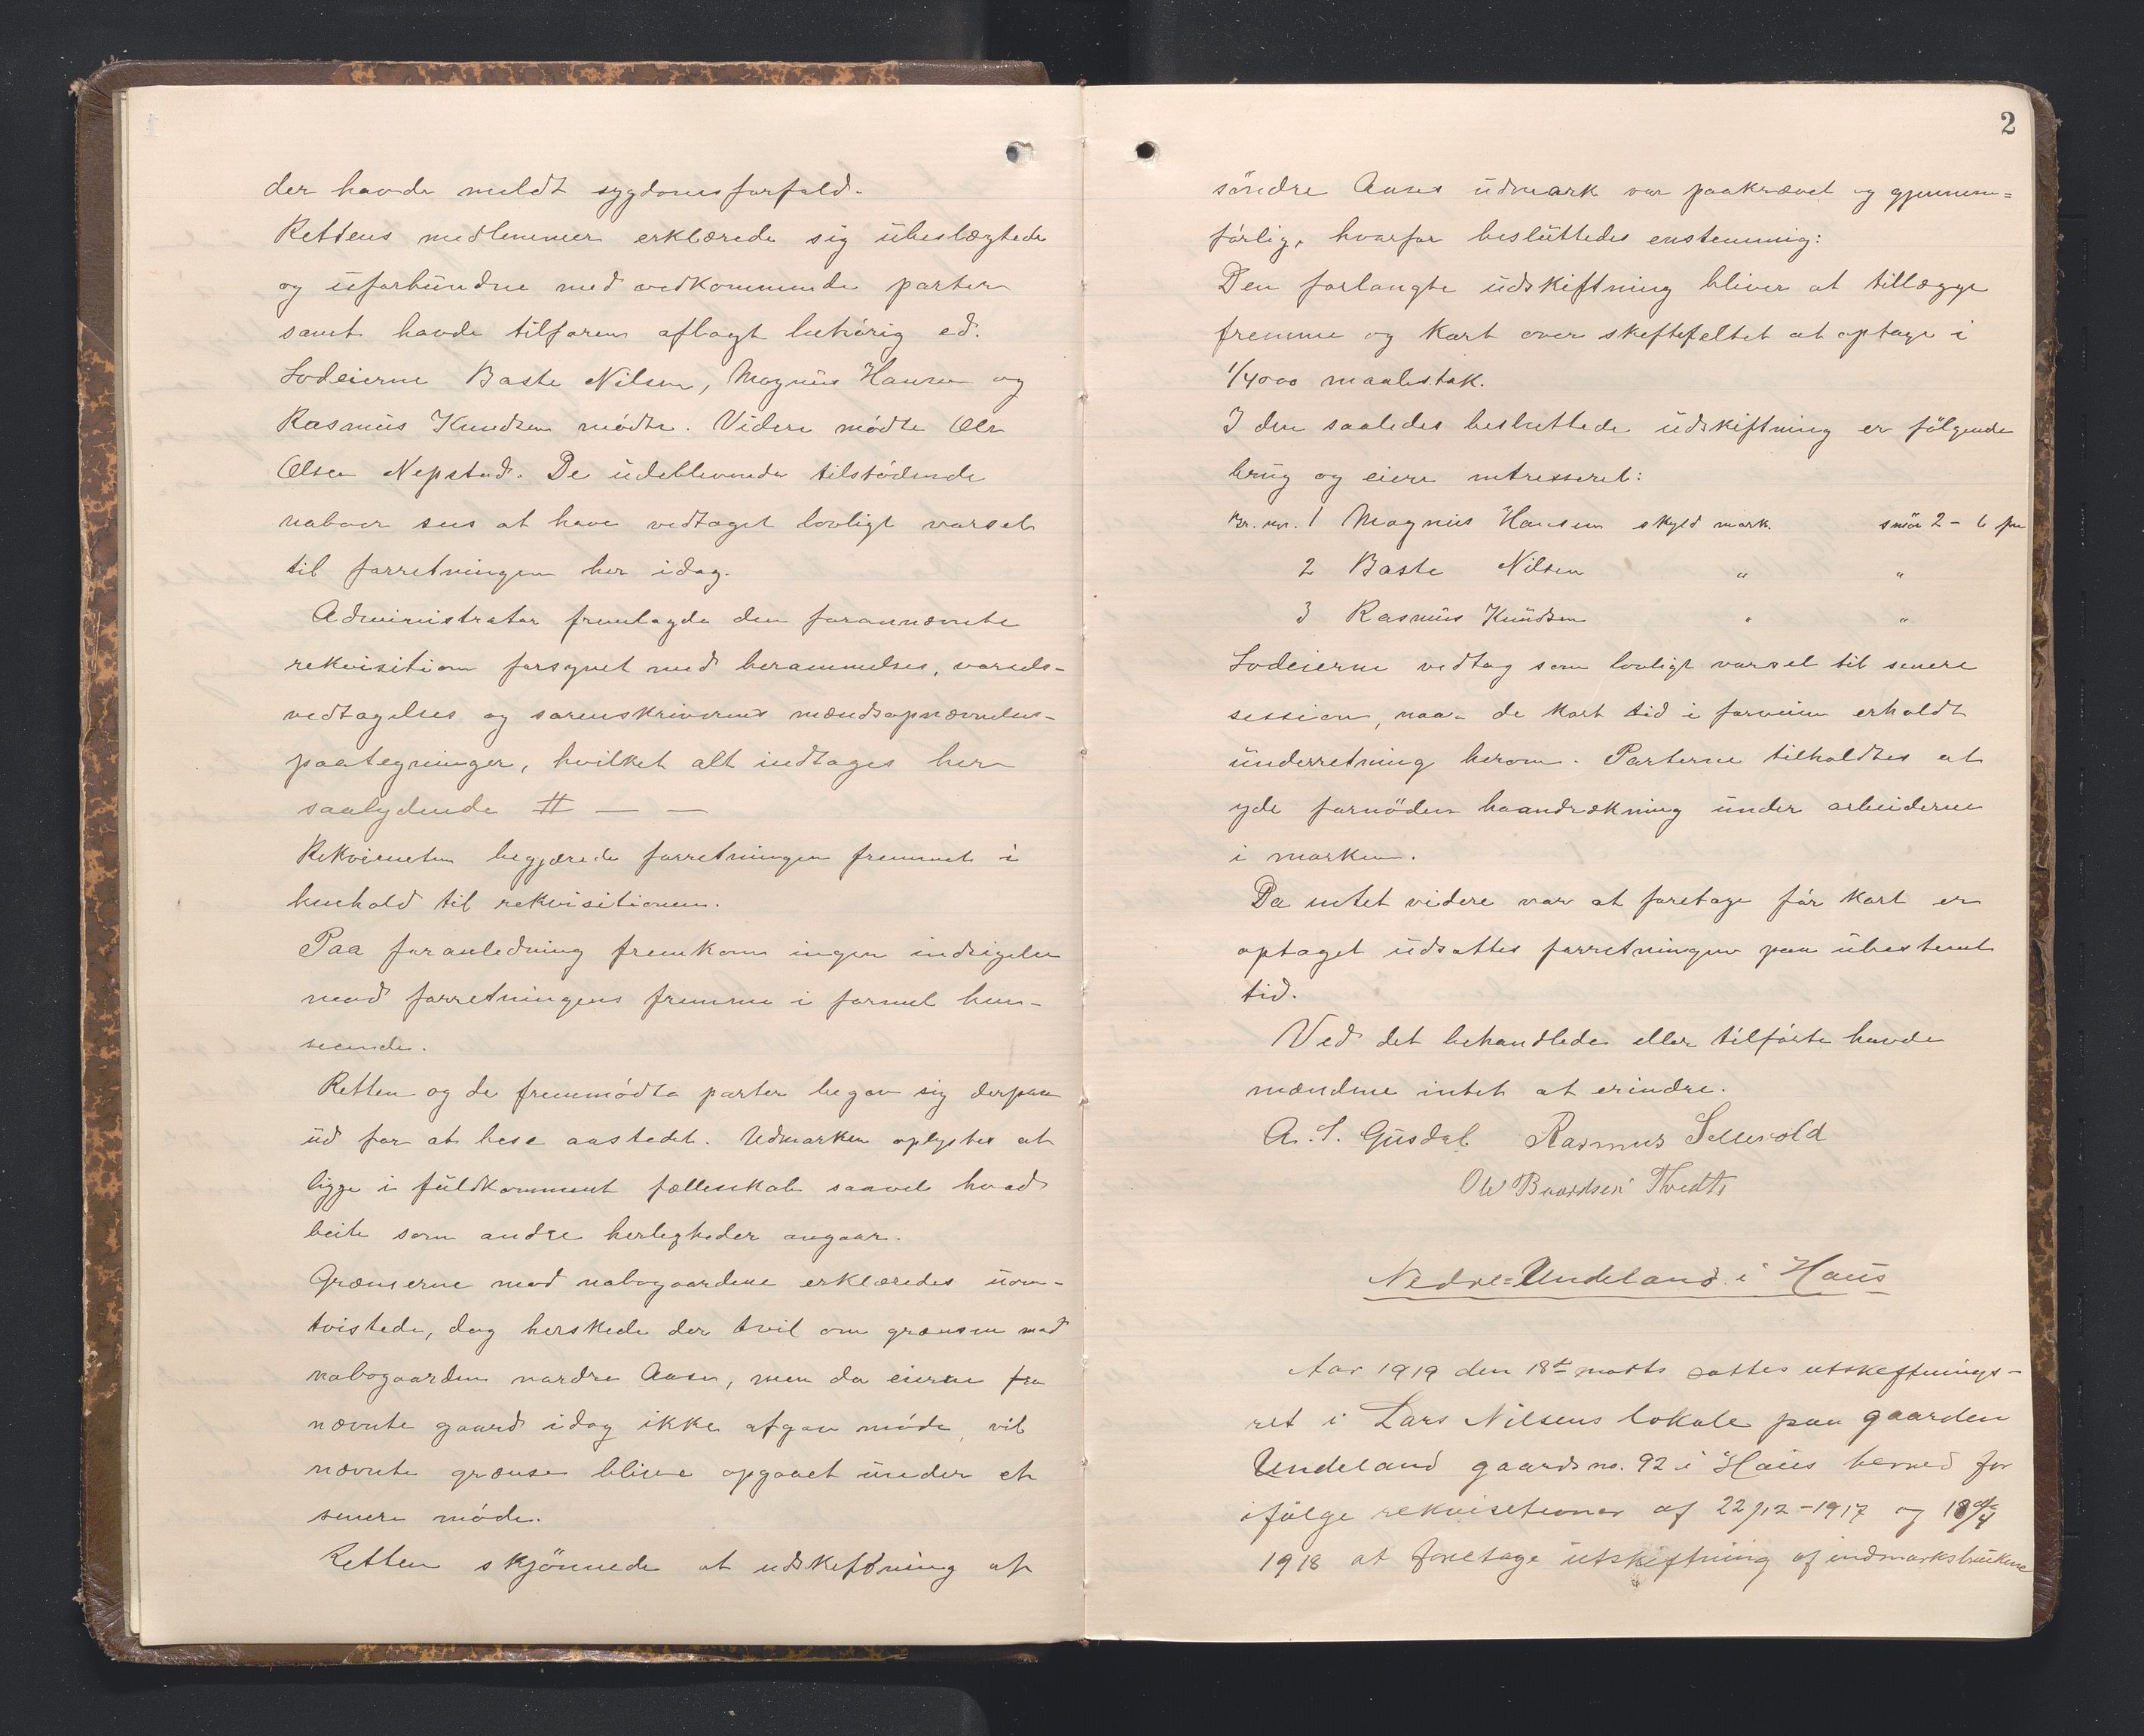 der havde meldt sygdomsforfald.
Rettens medlemmer erklærede sig übeslægtede
og üforbündne med vedkommende parter
samt havde tilforen aflagt behörig ed.
Lodeierne Baste Nilsen, Magnüs Hansen og
Rasmüs Knudsen mødte. Videre mødte Ole
Olsen Nepstad. De üdeblevnede tilstødende
naboer sees at have vedtaget lovligt varsel
til forretningen her idag.
Administrator fremlagde den forannævnte
rekvisition forsynet med berammelses, varsels-
vedtagelses og sorenskriverens mændsopnævnelses-
paategninger, hvilket alt indtages her
saalydende # — —
Rekvirenten begjærede forretningen fremmet i
henhold til rekvisitionen.
Paa foranledning fremkom ingen indsigelse
mod forretningens fremme i formel hen-
seende.
Retten og de fremmødte parter begav sig derpaa
üd for at bese aastedet. Udmarken oplystes at
ligge i füldkomment fællesskab saavel hvad
beite som andre herligheder angaar.
Grænserne mod nabogaardene erklæredes üom-
tvistede, dog herskede der tvil om grænsen mod
nabogaarden nordre Aase, men da eierne fra
nævnte gaard idag ikke afgav møde, vil
nævnte grænse blive opgaaet ünder et
senere møde.
Retten skjönnede at udskiftning af
2
söndre Aases üdmark var paakrævet og gjennem=
førlig, hvorfor beslüttedes enstemmig:
Den forlangte üdskiftning bliver at tillægge
fremme og kart over skiftefeltet at optage i
1/4000 maalestok.
I den saaledes besluttede üdskiftning er følgende
brüg og eiere intresseret:
Br. nr. 1 Magnüs Hansen skyld mark. smör 2 - 6 
2 Baste Nilsen " "
3 Rasmüs Knüdsen " "
Lodeierne vedtog som lovligt varsel til senere
session, naar de kort tid i forveien erholdt
ünderretning herom. Parterne tilholdtes at
yde fornöden haandrækning ünder arbeiderne
i marken.
Da intet videre var at foretage før kart er
optaget üdsattes forretningen paa übestemt
tid.
Ved det behandlede eller tilførte havde
mændene intet at erindre.
A. S. Güsdal Rasmus Sellevold
Ole Baardsen Tvedt
Nedre=Undeland i Haüs
Aar 1919 den 18de marts sattes utskiftnings-
ret i Lars Nilsens lokale paa gaarden
Undeland gaards no. 92 i Haüs herred for
ifölge rekvisitioner af 22/12-1917 og 18/4
1918 at foretage ütskiftning af indmarksbrükene